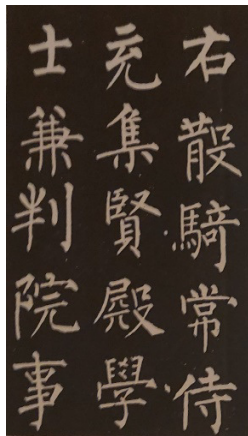 右散騎常侍
充集賢殿學
士兼判院事